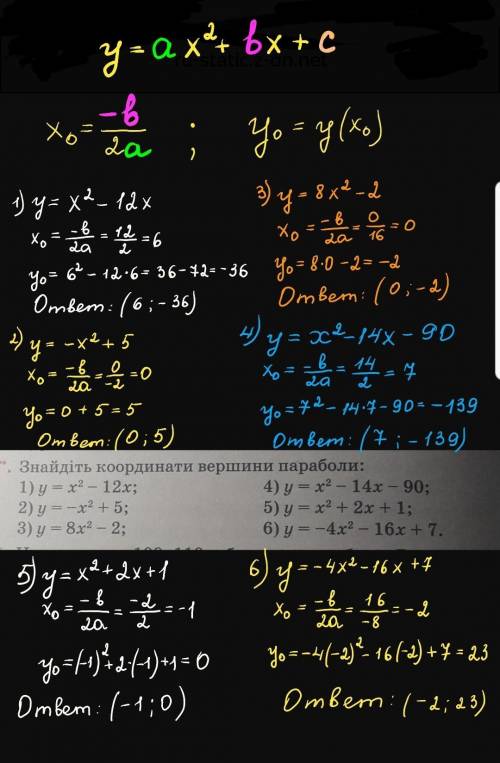 y = ax² + bx + c
x₀ = -b/2a ; y₀ = y(x₀)
1) y = x² - 12x
x₀ = -b/2a = 12/2 = 6
y₀ = 6² - 12·6 = 36 - 72 = -36
Ответ: (6 ; -36)
2) y = -x² + 5
x₀ = -b/2a = 0/-2 = 0
y₀ = 0 + 5 = 5
Ответ: (0 ; 5)
3) y = 8x² - 2
x₀ = -b/2a = 0/16 = 0
y₀ = 8·0 - 2 = -2
Ответ: (0 ; -2)
4) y = x² - 14x - 90
x₀ = -b/2a = 14/2 = 7
y₀ = 7² - 14·7 - 90 = -139
Ответ: (7 ; -139)
Знайдіть координати вершини параболи:
1) y = x² – 12x;
2) y = –x² + 5;
3) y = 8x² – 2;
4) y = x² – 14x – 90;
5) y = x² + 2x + 1;
6) y = –4x² – 16x + 7.
5) y = x² + 2x + 1
x₀ = -b/2a = -2/2 = -1
y₀ = (-1)² + 2·(-1) + 1 = 0
Ответ: (-1 ; 0)
6) y = -4x² - 16x + 7
x₀ = -b/2a = 16/-8 = -2
y₀ = -4(-2)² - 16(-2) + 7 = 23
Ответ: (-2 ; 23)